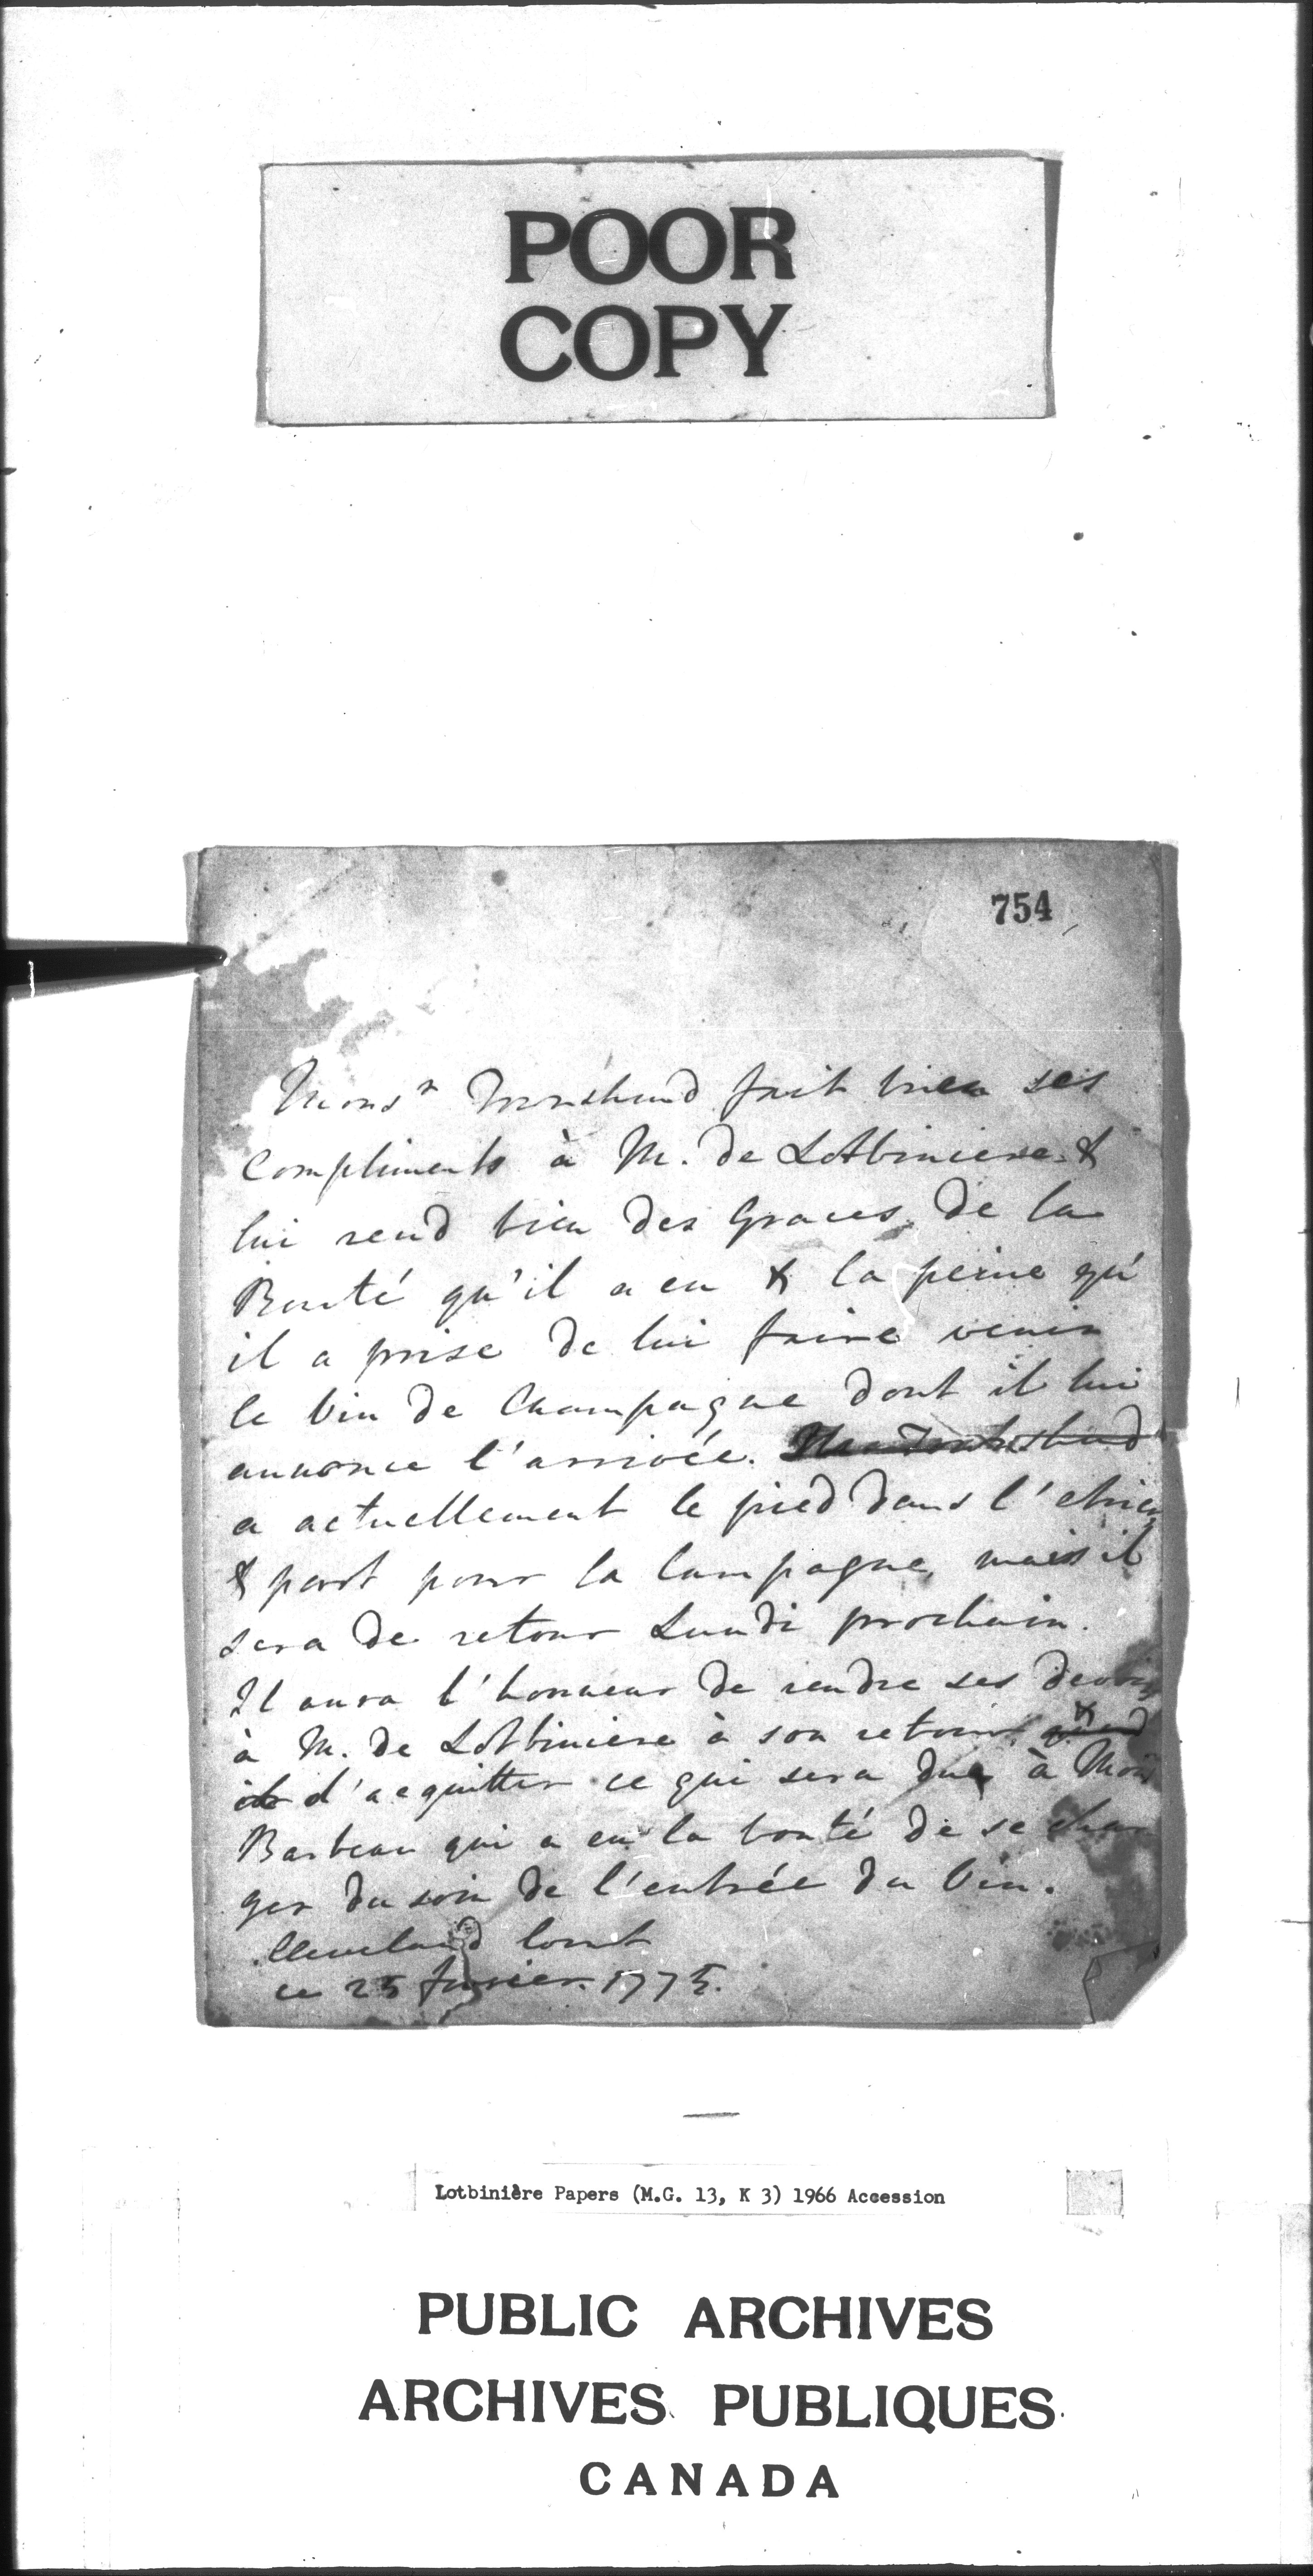 POOR
COPY
754
Monsr Townshend fait bien ses
Compliments à M. de Lotbiniere &
lui rend bien des Graces de la
Bonté qu'il a eu & la peine qu'
il a prise de lui faire venir
le Vin de Champagne dont il lui
annonce l'arrivée. Mr Townshend
a actuellement le pied dans l'etrier
& part pour la Campagne, mais il
sera de retour Lundi prochain.
Il aura l'honneur de rendre ses devoirs
à M. de Lotbiniere à son retour &
d'acquitter ce qui sera du à Mons
Barbeau qui a eu la bonté de se char
ger du soin de l'entrée du Vin.
Cleveland Court
ce 25 Fevrier 1775.
Lotbinière Papers (M.G. 13, K 3) 1966 Accession
PUBLIC ARCHIVES
ARCHIVES PUBLIQUES
CANADA